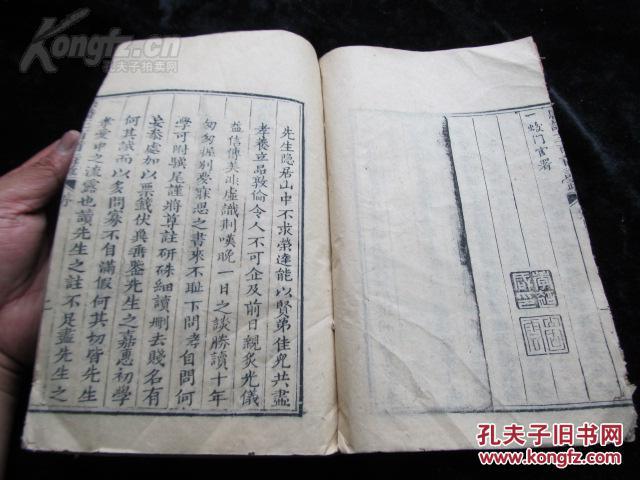 一蛟門官署
先生隐居山中不求榮達能以賢弟佳兒共盡
孝養立品敦倫令人不可企及前日親炙光儀
益信傳美非虛識荆嘆晚一日之談勝讀十年
匆匆握别寤寐思之書來不耻下問考自問何
學可附驥尾謹將尊註研硃細讀刪去賤名有
叅處加以票籤伏奥垂鑒先生之嘉惠初學
何其誠而以多問寡不自滿假何其切皆先生
孝愛中之流露也讀先生之註不足盡先生之
序
Kongfz.cn
孔夫子拍卖网
孔夫子旧书网
www.kongfz.com